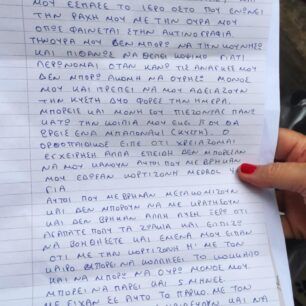 ΜΟΥ ΕΣΠΑΣΕ ΤΟ ΙΕΡΟ ΟΣΤΟ ΠΟΥ ΕΝΩΝΕΙ
ΤΗΝ ΡΑΧΗ ΜΟΥ ΜΕ ΤΗΝ ΟΥΡΑ ΜΟΥ
ΟΠΩΣ ΦΑΙΝΕΤΑΙ ΣΤΗΝ ΑΚΤΙΝΟΓΡΑΦΙΑ.
ΤΗΝ ΟΥΡΑ ΜΟΥ ΔΕΝ ΜΠΟΡΩ ΝΑ ΤΗΝ ΚΟΥΝΗΣΩ
ΚΑΙ ΠΙΘΑΝΩΣ ΝΑ ΘΕΛΕΙ ΚΟΨΙΜΟ ΓΙΑΤΙ
ΛΕΡΩΝΟΜΑΙ ΟΤΑΝ ΚΑΝΩ ΤΙΣ ΑΝΑΓΚΕΣ ΜΟΥ
ΔΕΝ ΜΠΟΡΩ ΑΚΟΜΗ ΝΑ ΟΥΡΗΣΩ ΜΟΝΟΣ
ΜΟΥ ΚΑΙ ΠΡΕΠΕΙ ΝΑ ΜΟΥ ΑΔΕΙΑΖΟΥΝ
ΤΗΝ ΚΥΣΤΗ ΔΥΟ ΦΟΡΕΣ ΤΗΝ ΗΜΕΡΑ.
ΜΠΟΡΕΙΣ ΚΑΙ ΜΟΝΗ ΣΟΥ ΠΙΕΖΟΝΤΑΣ ΠΑΝΩ
ΚΑΤΩ ΤΗΝ ΚΟΙΛΙΑ ΜΟΥ ΕΚΕΙ ΠΟΥ ΘΑ
ΒΡΕΙΣ ΕΝΑ ΜΠΑΛΟΝΑΚΙ (ΚΥΣΤΗ). Ο
ΟΡΘΟΠΑΙΔΙΚΟΣ ΕΙΠΕ ΟΤΙ ΧΡΕΙΑΖΟΜΑΙ
ΕΓΧΕΙΡΗΣΗ ΑΛΛΑ ΕΠΕΙΔΗ ΔΕΝ ΜΠΟΡΕΣΑΝ
ΝΑ ΜΟΥ ΚΑΝΟΥΝ ΑΥΤΟΙ ΠΟΥ ΜΕ ΒΡΗΚΑΝ
ΜΟΥ ΕΔΩΣΑΝ ΚΟΡΤΙΖΟΝΗ MEDROL
ΓΙΑ.
ΑΥΤΟΙ ΠΟΥ ΜΕ ΒΡΗΚΑΝ ΜΕΤΑΚΟΜΙΖΟΥΝ
ΚΑΙ ΔΕΝ ΜΠΟΡΟΥΝ ΝΑ ΜΕ ΚΡΑΤΗΣΟΥΝ
ΚΑΙ ΔΕΝ ΒΡΗΚΑΝ ΑΛΛΗ ΛΥΣΗ ΞΕΡΩ ΟΤΙ
ΑΓΑΠΑΤΕ ΠΟΛΥ ΤΑ ΖΩΑΚΙΑ ΚΑΙ ΕΛΠΙΖΩ
ΝΑ ΒΟΗΘΗΣΕΤΕ ΚΑΙ ΕΜΕΝΑ ΜΟΥ ΕΙΠΑΝ
ΟΤΙ ΜΕ ΤΗΝ ΚΟΡΤΙΖΟΝΗ Η ΜΕ ΤΟΝ
ΚΑΙΡΟ ΜΠΟΡΕΙ ΝΑ ΚΟΛΛΗΣΕΙ ΤΟ ΚΟΚΚΑΛΟ
ΚΑΙ ΝΑ ΜΠΟΡΩ ΝΑ ΟΥΡΩ ΜΟΝΟΣ ΜΟΥ.
ΜΠΟΡΕΙ ΝΑ ΠΑΡΕΙ ΚΑΙ 5 ΜΗΝΕΣ
ΜΕ ΕΙΧΑΝ ΣΕ ΑΥΤΟ ΤΟ ΠΑΡΚΟ ΜΕ ΤΟΝ
ΚΑΙ ΝΑ